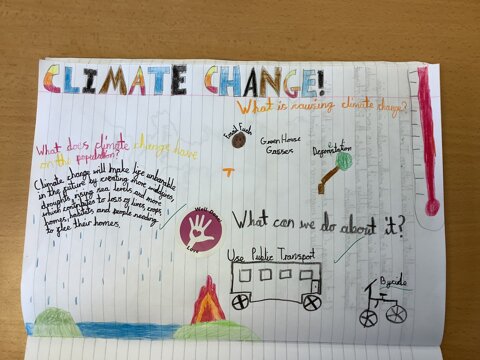 CLIMATE CHANGE!
What is causing climate change?
Fossil Fuels
Green House
Gasses
Deforestation
What does climate change have
on the population?
Climate change will make life unbearable
in the future by creating more wildfires,
droughts, rising sea levels and more
which contributes to loss of lives, crops,
homes, habitats, and people needing
to flee their homes.
What can we do about it?
Use Public Transport
Bycicle